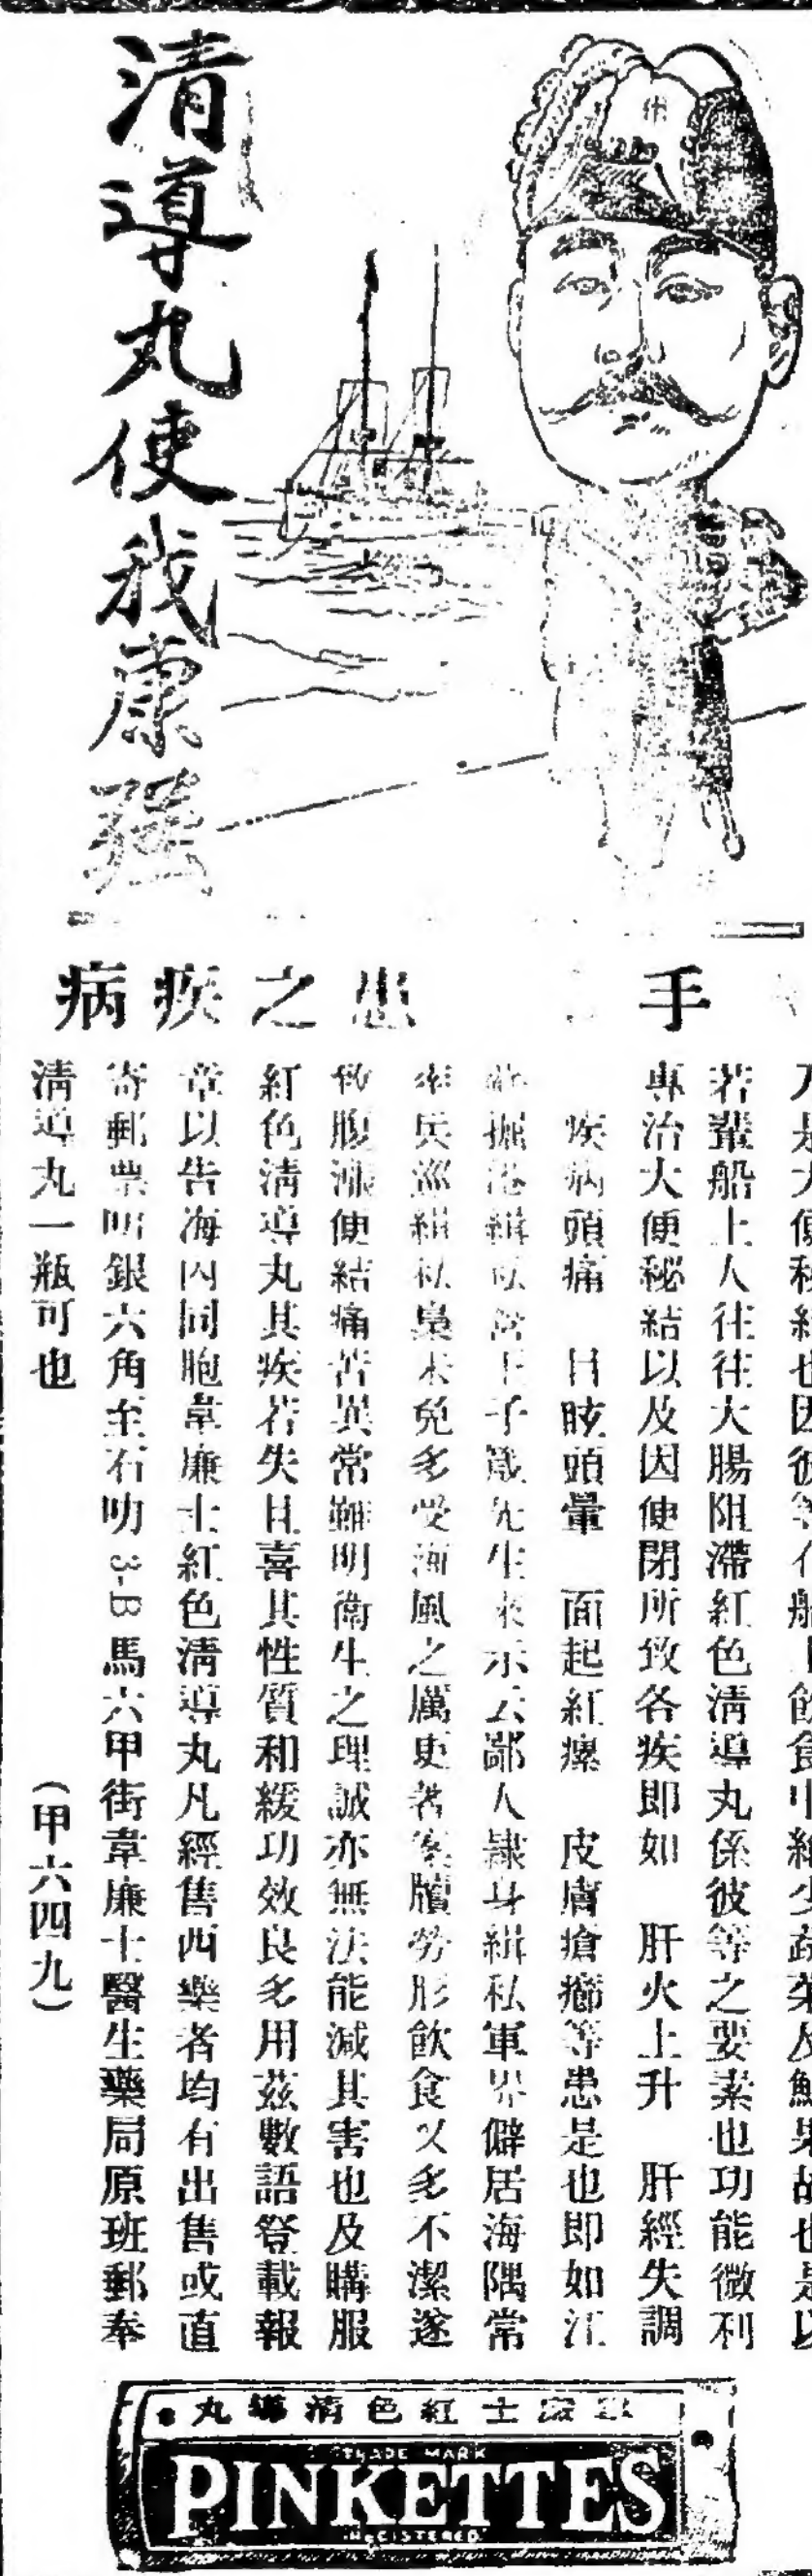 清導丸使我康強
手 患之疾病
乃是大便秘結也因彼等在船上飲食中絕少蔬菜及鮮果故也是以
若輩船上人往往大腸阻滯紅色清導丸係彼等之要素也功能微利
專治大便秘結以及因便閉所致各疾即如 肝火上升 肝經失調
疾病頭痛 目眩頭暈 面起紅瘰 皮膚瘡癤等患是也即如江
掘港緝私營王子箴先生來示云鄙人隸身緝私軍界僻居海隅常
率兵巡緝私梟未免多受海風之厲更著案牘勞形飲食又多不潔遂
致腹漲便結痛苦異常雖明衛生之理誠亦無法能減其害也及購服
紅色清導丸其疾若失且喜其性質和緩功效良多用茲數語登載報
章以告海內同胞韋廉士紅色清導丸凡經售西藥者均有出售或直
寄郵票叻銀六角至石叻3-B馬六甲街韋廉士醫生藥局原班郵奉
清導丸一瓶可也
(甲六四九)
丸導清色紅士廉
TRADE MARK
PINKETTES
REGISTERED